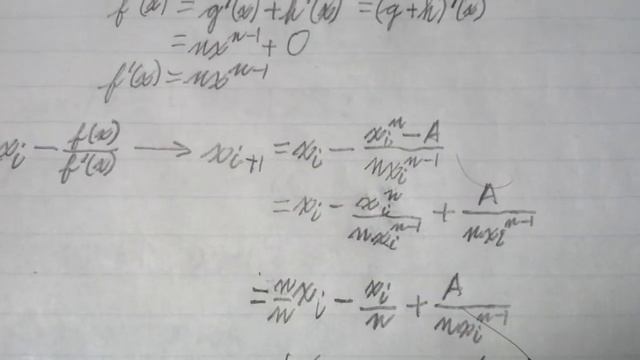 f'(x) = g'(x) + h'(x) = (g+h)'(x)
= nx^{n-1} + 0
f'(x) = nx^{n-1}
x_i - \frac{f(x)}{f'(x)} → x_{i+1} = x_i - \frac{x_i^n - A}{nx_i^{n-1}}
= x_i - \frac{x_i^n}{nx_i^{n-1}} + \frac{A}{nx_i^{n-1}}
= \frac{n}{n}x_i - \frac{x_i}{n} + \frac{A}{nx_i^{n-1}}